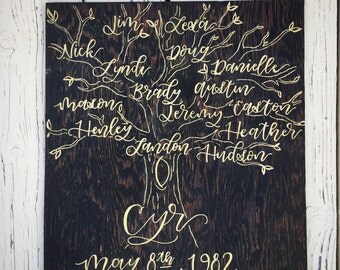 Jim Lexa
Nick Doug
Lyndi Danielle
Brady Austin
Mason Jeremy Easton
Henley Heather
Landon Hudson
Cyr
May 8th, 1982